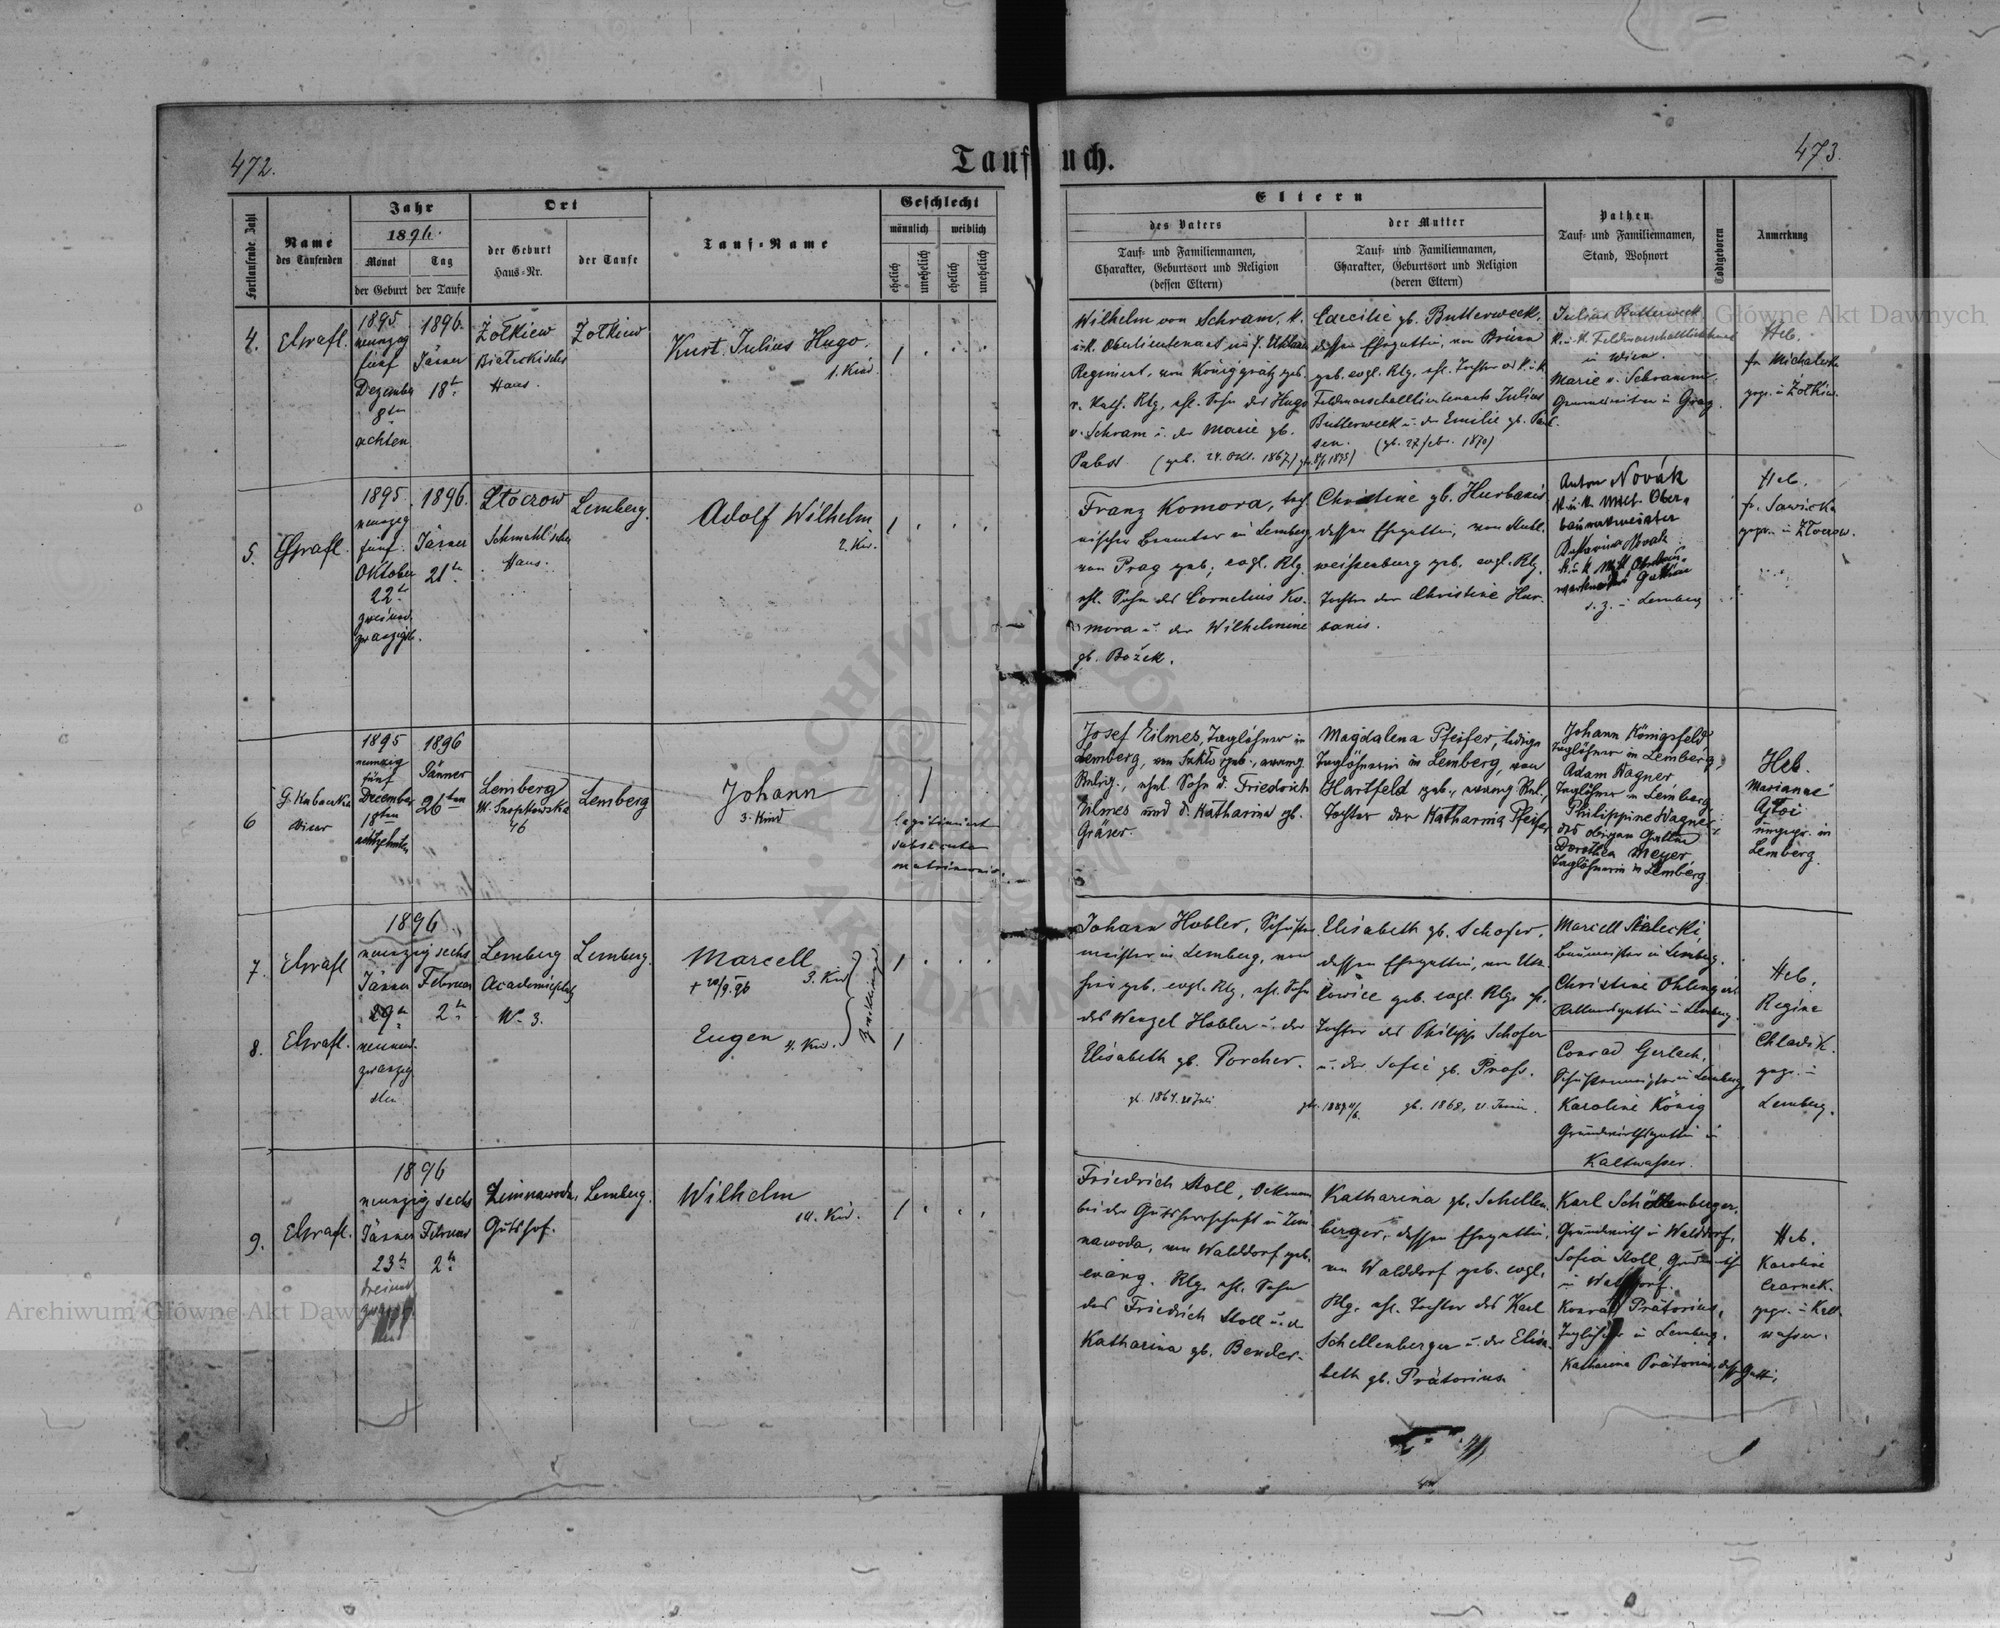 472.
Taufbuch.
473.
Fortlaufende Zahl
Name
des Taufenden
Jahr
1896.
Monat
der Geburt
Tag
der Taufe
Ort
der Geburt
Haus-Nr.
der Taufe
Tauf-Name
Geschlecht
männlich
weiblich
ehelich
unehelich
ehelich
unehelich
Eltern
des Vaters
Tauf- und Familiennamen,
Charakter, Geburtsort und Religion
(dessen Eltern)
der Mutter
Tauf- und Familiennamen,
Charakter, Geburtsort und Religion
(deren Eltern)
Pathen
Tauf- und Familiennamen,
Stand, Wohnort
Todtgeboren
Anmerkung
4.
1895
neunzig
fünf
Dezember
8ten
achten
1896.
Jänner
18t.
Żołkiew
Haus.
Żołkiew
Kurt Julius Hugo.
1. Kind.
Wilhelm von Schram, k.
u. k. Oberlieutenant im 7. Uhlanen
Regiment, von Königgrätz geb.
r. kath. Rlg, ehl. Sohn des Hugo
v. Schram u. der Marie gb.
Pabst (geb. 24. Okt. 1867)
Caecilie gb. Butterweck,
dessen Ehegattin, von Brünn
geb. evgl. Rlg, ehl. Tochter des k. u. k.
Feldmarschalllieutenants Julius
Butterweck u. der Emilie gb. Paul-
sen. (gb. 27 Febr. 1870)
Julius Butterweck
k. u. k. Feldmarschalllieutenant
in Wien.
Marie v. Schramm
in Graz.
Heb.
gepr. in Żołkiew.
5.
1895.
neunzig
fünf
Oktober
22t.
zweiund
zwanzigst.
1896.
Jänner
21t.
Złocrow
Haus.
Lemberg.
Adolf Wilhelm
2. Kind.
Franz Komora, tech-
nischer Beamter in Lemberg,
von Prag geb; evgl. Rlg.
ehl. Sohn des Cornelius Ko-
mora u. der Wilhelmine
gb. Božek.
Christine gb. Hurbanis
dessen Ehegattin, von Stuhl-
weißenburg geb. evgl. Rlg.
Tochter der Christine Hur-
banis.
Anton Novák
k. u. k. Milit. Ober-
bauwerkmeister
Katharina Novák
k. u. k. Milit. Oberbau-
werkmeisters Gattin
d. z. in Lemberg
Heb.
fr. Sawicka
gepr. in Złocrow.
6
G. Kubaczka
Vicar
1895
neunzig
fünf
December
18ten
achtzehnten
1896
Jänner
26ten
Lemberg
ul. Snopkowska
46
Lemberg
Johann
3. Kind
legitimiert
subsecuto
matrimonio.
Josef Zilmes, Taglöhner in
Lemberg, von geb., evang.
Relig., ehel. Sohn d. Friedrich
Zilmes und d. Katharina gb.
Gräser
Magdalena Pfeifer, ledige
Taglöhnerin in Lemberg, von
Hartfeld geb., evang. Rel.,
Tochter der Katharina Pfeifer
Johann Königsfeld,
Taglöhner in Lemberg,
Adam Wagner
Taglöhner in Lemberg
Philippine Wagner
des obigen Gattin
Dorothea Meyer
Taglöhnerin in Lemberg.
Heb.
Marianne
ungepr. in
Lemberg.
7.
8.
1896
neunzig sechs
Jänner
29t.
neunund-
zwanzig
sten
Februar
2t.
Lemberg
Academieplatz
Nr. 3.
Lemberg.
Marcell
+ 20/9. 96
3. Kind
Eugen
4. Kind.
Zwillinge
Johann Hobler, Schuster-
meister in Lemberg, von
geb. evgl. Rlg, ehl. Sohn
des Wenzel Hobler u. der
Elisabeth gb. Porcher.
gb. 1864. 28 Juli
Elisabeth gb. Schofer,
dessen Ehegattin, von Usz-
kowice geb. evgl. Rlg, ehl.
Tochter des Philipp Schofer
u. der Sofie gb. Prass.
gb. 1868, 21. Jänner.
Baumeister in Lemberg.
Christine
in Lemberg.
Conrad Gerlach,
Schustermeister in Lemberg
Karoline König
Grundwirthsgattin in
Kaltwasser.
Heb.
Regine
Chladek.
gepr. in
Lemberg.
9.
1896
neunzig sechs
Jänner
23t.
dreiund
Februar
2t.
Zimnawoda,
Gutshof.
Lemberg.
Wilhelm
14. Kind.
Friedrich Stoll, Oekonom
bei der Gutsherrschaft in Zim-
nawoda, von Walddorf geb.
evang. Rlg. ehl. Sohn
des Friedrich Stoll u. der
Katharina gb. Bender.
Katharina gb. Schellen-
berger, dessen Ehegattin,
von Walddorf geb. evgl.
Rlg. ehl. Tochter des Karl
Schellenberger u. der Elisa-
beth gb. Prätorius.
Karl Schellenberger,
Grundwirth in Walddorf,
Sofia Stoll, Grundwirth
in Walddorf.
Konrad Prätorius,
Taglöhner in Lemberg.
Katharina Prätorius, dess. Gattin,
Heb.
Karoline
Czarnek.
gepr. in Kalt-
wasser.
Archiwum Główne Akt Dawnych
Archiwum Główne Akt Dawnych